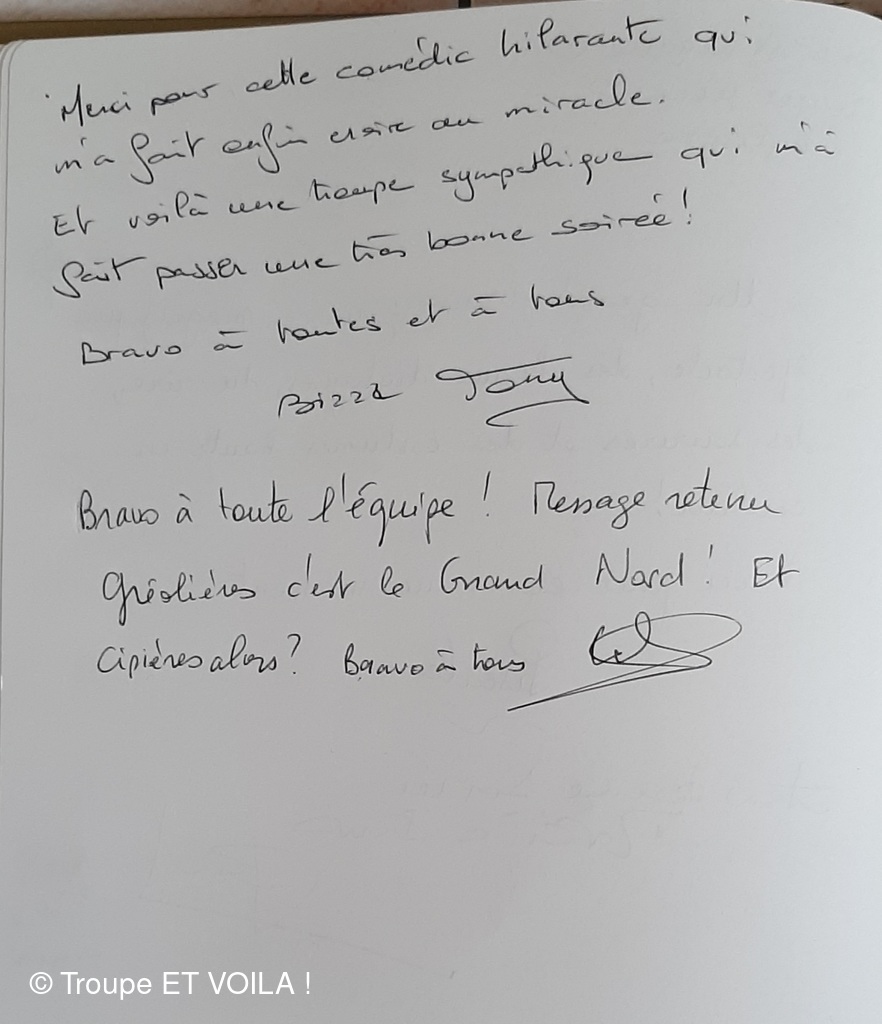 Merci pour cette comédie hilarante qui
m'a fait enfin croire au miracle.
Et voilà une troupe sympathique qui m'à
fait passer une très bonne soireé !
Bravo à toutes et à tous
Bizza Tony
Bravo à toute l'équipe ! Message retenu
Gréolières c'est le Grand Nord ! Et
Cipières alors ? Bravo à tous
© Troupe ET VOILA !